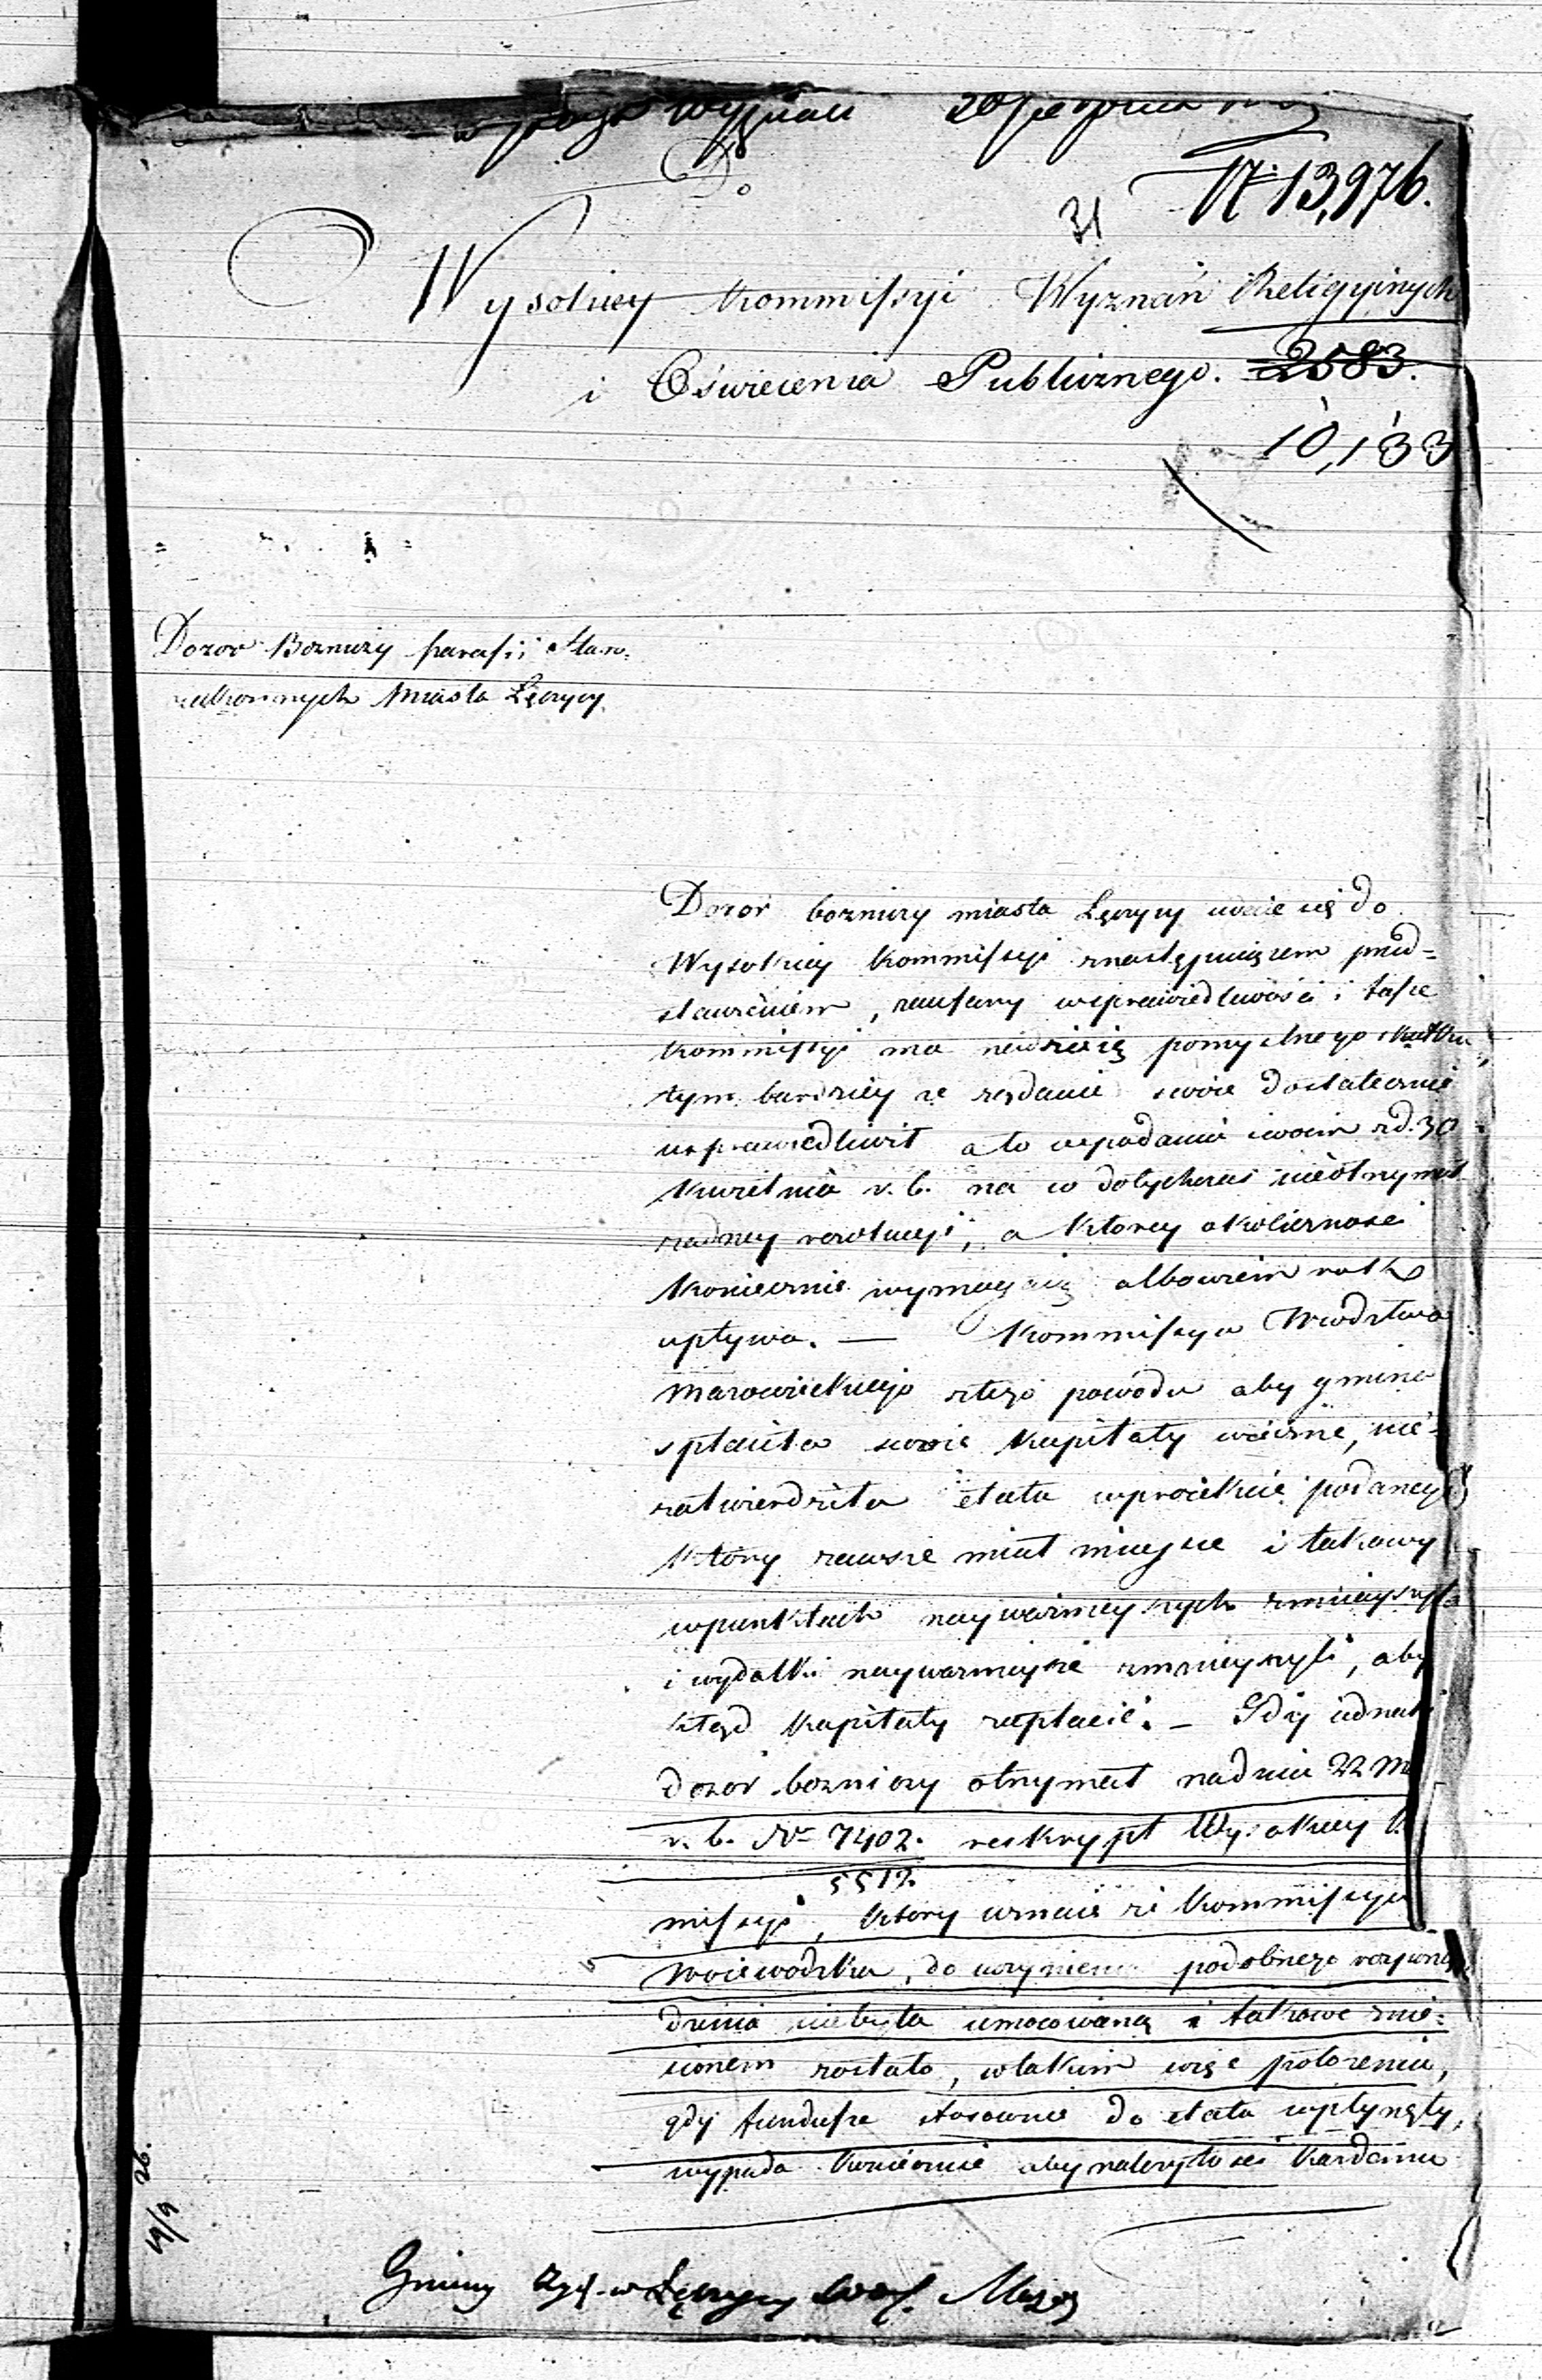 Do
31
N 13,976.
Wysokiey Kommissyi Wyznań Religyinych
i Oświecenia Publicznego. 2583.
10,133
Dozor Bozniczy parafii Staro-
zakonnych Miasta Łęczycy
Dozor bozniczy miasta Łęczycy udaie się do
Wysokiey Kommissyi znastępuiącem przed-
stawieniem, zaufany wsprawiedliwości i łasce
Kommissyi ma nadzieię pomyslnego skutku,
tym bardziey ze rządanie swoie dostatecznie
usprawiedliwił a to wpodaniu swoim zd. 30
Kwietnia r. b. na co dotychczas nieotrzymał
zadney rezolucyi, a ktorey okoliczność
koniecznie wymaga albowiem rok
upływa. — Kommissya Wwodztwa
Mazowieckiego ztego powodu aby gmina
spłaciła swoie Kapitały wieczne, nie-
zatwierdziła etatu wproiekcie podanego
ktory zawsze miał mieysce i takowy
wpunktach nayważnieyszych zmnieyszyła
i wydatki nayważnieysze zmnieyszyli, aby
ztąd Kapitały zapłacić. — Gdy iednak
dozor bozniczy otrzymał nadniu 22 M
r. b. Nr 7402. reskrypt Wysokiey K
5512.
missyi, ktory uznaie ze Kommissya
Woiewodzka, do uczynienia podobnego rozporzą
dzenia niebyła umocowaną i takowe znie-
sionem zostało, wtakim więc położeniu,
gdy fundusze stosownie do etatu wpłynęły,
wypada koniecznie aby należytości każdemu
19/9 26.
Gminy Zyd. w Łęczycy Woj. Mazo